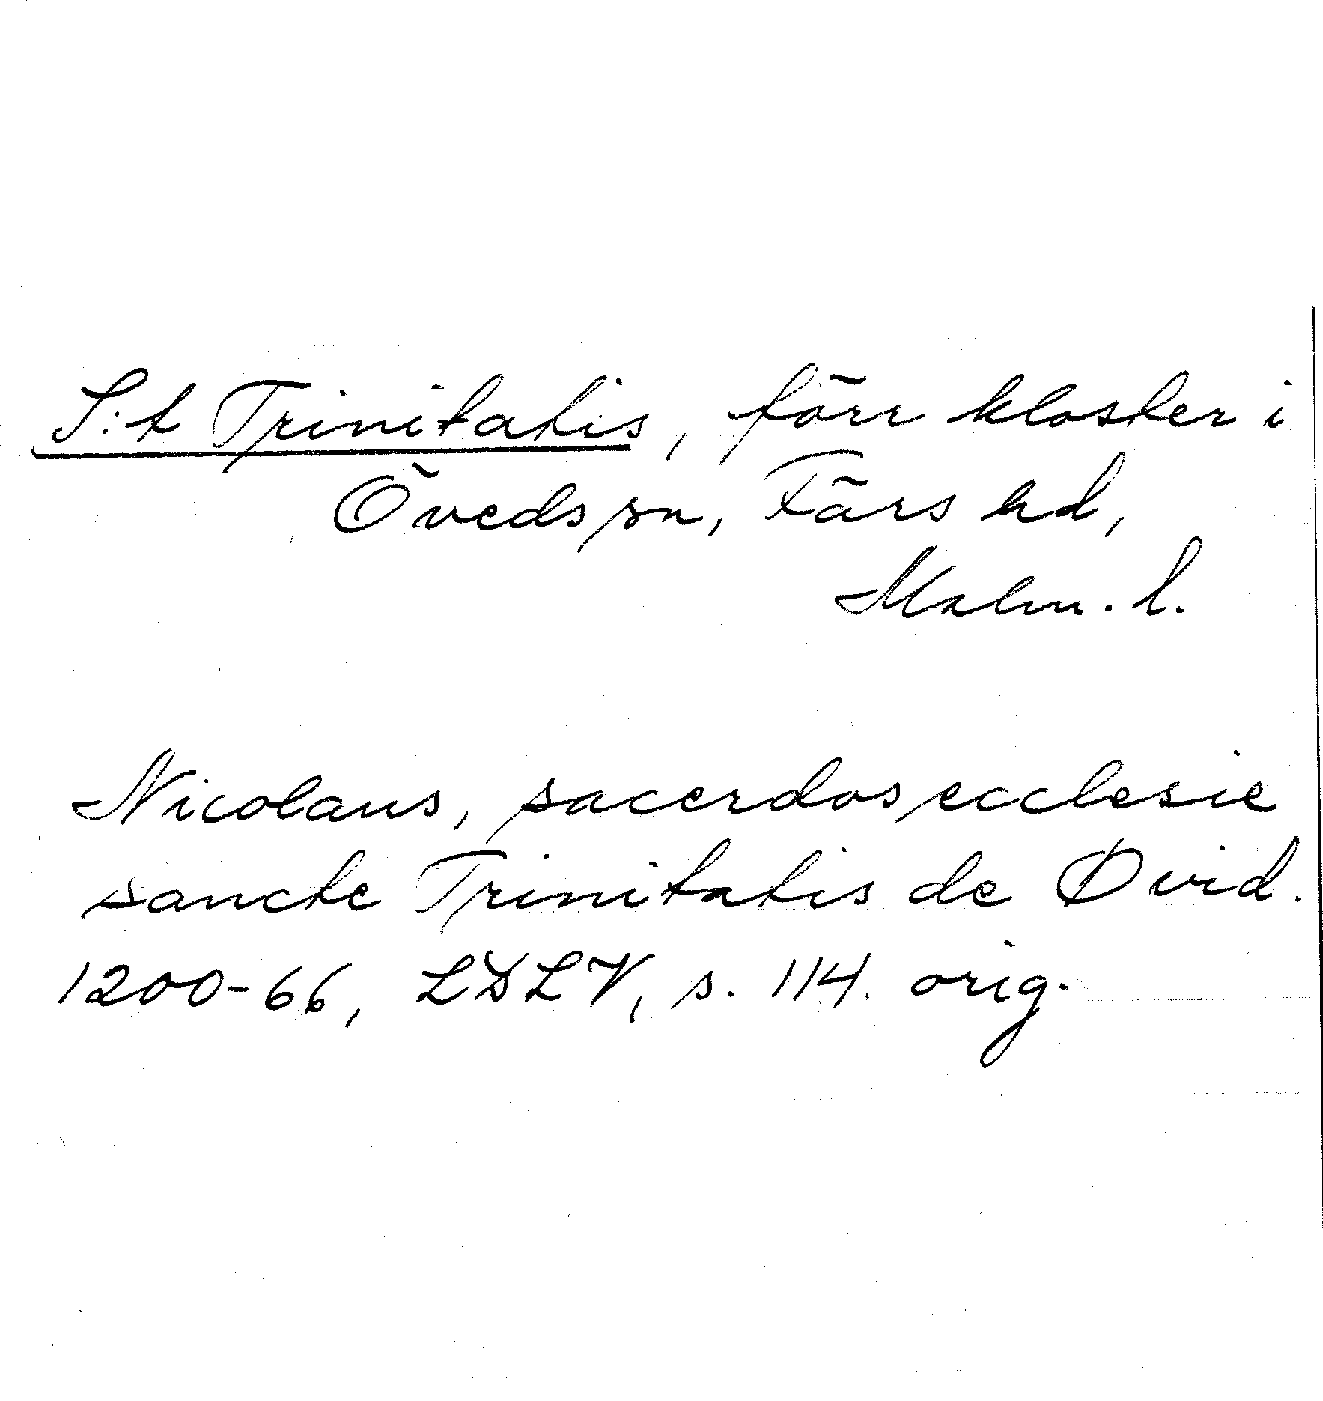 S:t Trinitatis, förr kloster i
Öveds sn, Färs hd,
Malm. l.
Nicolaus, sacerdos ecclesie
sancte Trinitatis de Øvid.
1200-66, LDLV, s. 114. orig.